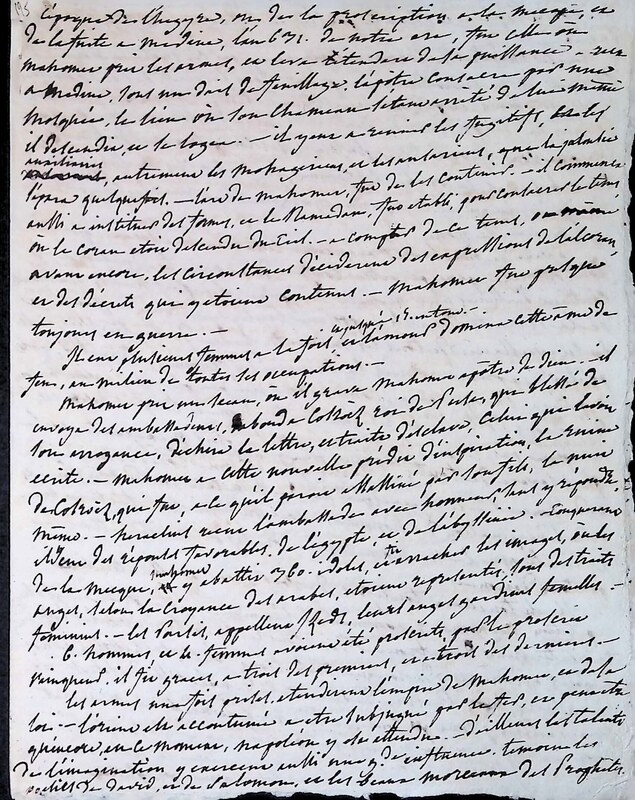 195
époque de l'hegyre, ou de la proscription a la mecque, et
de la fuite a medine, l'an 631. de notre ere, fut celle où
mahomet prit les armes, et leva l'etendard de la puissance - reçu
a Medine, sous un dais de feuillage, l'apôtre consacra par une
mosquée, le lieu où son chameau s'etant arreté de lui même
il descendit, et se logea. - il y eut a reunir les fugitifs, et les
auxiliaires
, autrement les mohageriens, et les ansariens, que la jalousie
sépara quelquefois. - l'art de mahomet, fut de les contenir. - il commença
aussi a instituer des formes, et le Ramadan, fut etabli, pour consacrer le tems
où le coran etoit descendu du Ciel. - a compter de ce tems, ou même
avant encore, les circonstances déciderent des expressions de l'alcoran,
et des décrets qui y etoient contenus. - mahomet fut presque
toujours en guerre. -
Il eut plusieurs femmes a la fois, et jusqu'à 15. en tout -
et l'amour domina cette ame de
feu, au milieu de toutes les occupations. -
Mahomet prit un sceau, où il grava Mahomet apôtre de dieu - il
envoya des ambassadeurs, d'abord a Cosroèz roi de Perse, qui blessé de
son arrogance, déchira la lettre, et traita d'esclave, celui qui l'avoit
ecrite. - Mahomet a cette nouvelle predit d'inspiration, la ruine
de Cosroèz, qui fut, a ce qu'il paroit assassiné par son fils, la nuit
même. - heraclius reçut l'ambassade avec honneur sans y répondre,
il y eut des réponses favorables, de l'egypte, et de l'abyssinie. - Conquerant
de la mecque, mahomet y abattit 360. idoles, et arracher les images, où les
anges, selon la croyance des arabes, etoient representés, sous des traits
feminins. - les Perses, appelloient Izeds, leurs anges gardiens femelles -
6. hommes, et 6. femmes avoient été proscrits, par le proscrit
vainqueur, il fit graces, a trois des premiers, et a trois des derniers. -
les armes une fois prises, etendirent l'empire de Mahomet, et de sa
loi. - l'orient est accoutumé a etre subjugué par le fer, et peut etre
qu'encore, en ce moment, napoléon y est attendu. - d'ailleurs les talents
de l'imagination y exercent aussi une gde influence. temoins les
poesies de david, et de Salomon, et les beaux morceaux des Prophetes.